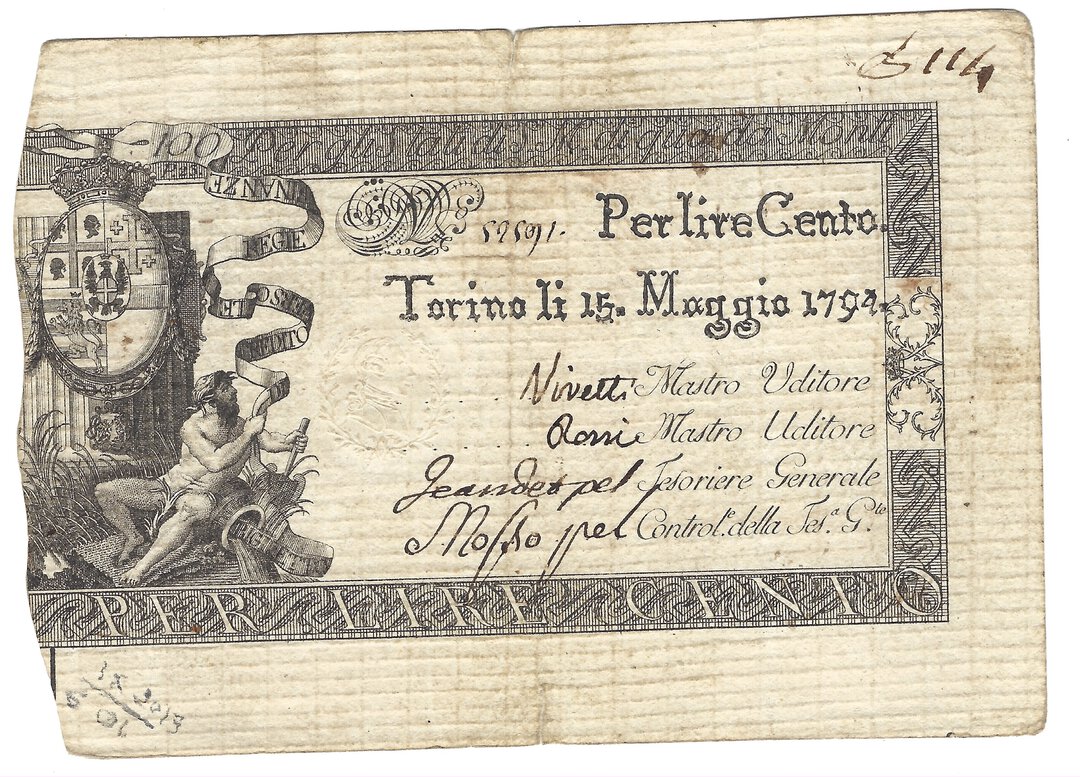 114
100 Per gli Stati di S. M. di quà da Monti
FINANZE
REGIE
52591.
Per lire Cento.
Torino li 15. Maggio 1794.
Vivetti Mastro Uditore
Mastro Uditore
pel Tesoriere Generale
Mosso pel Control.e della Tes.a G.le
PER LIRE CENTO